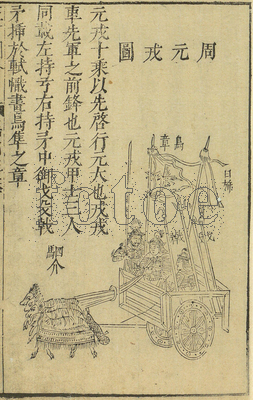 周元戎圖
元戎十乘以先啓行元大也戎戎
車先軍之前鋒也元戎甲士三人
同載左持弓右持矛中御戈殳戟
矛插於軾幟畫鳥隼之章
鳥章
白旆
駟介
fotoe